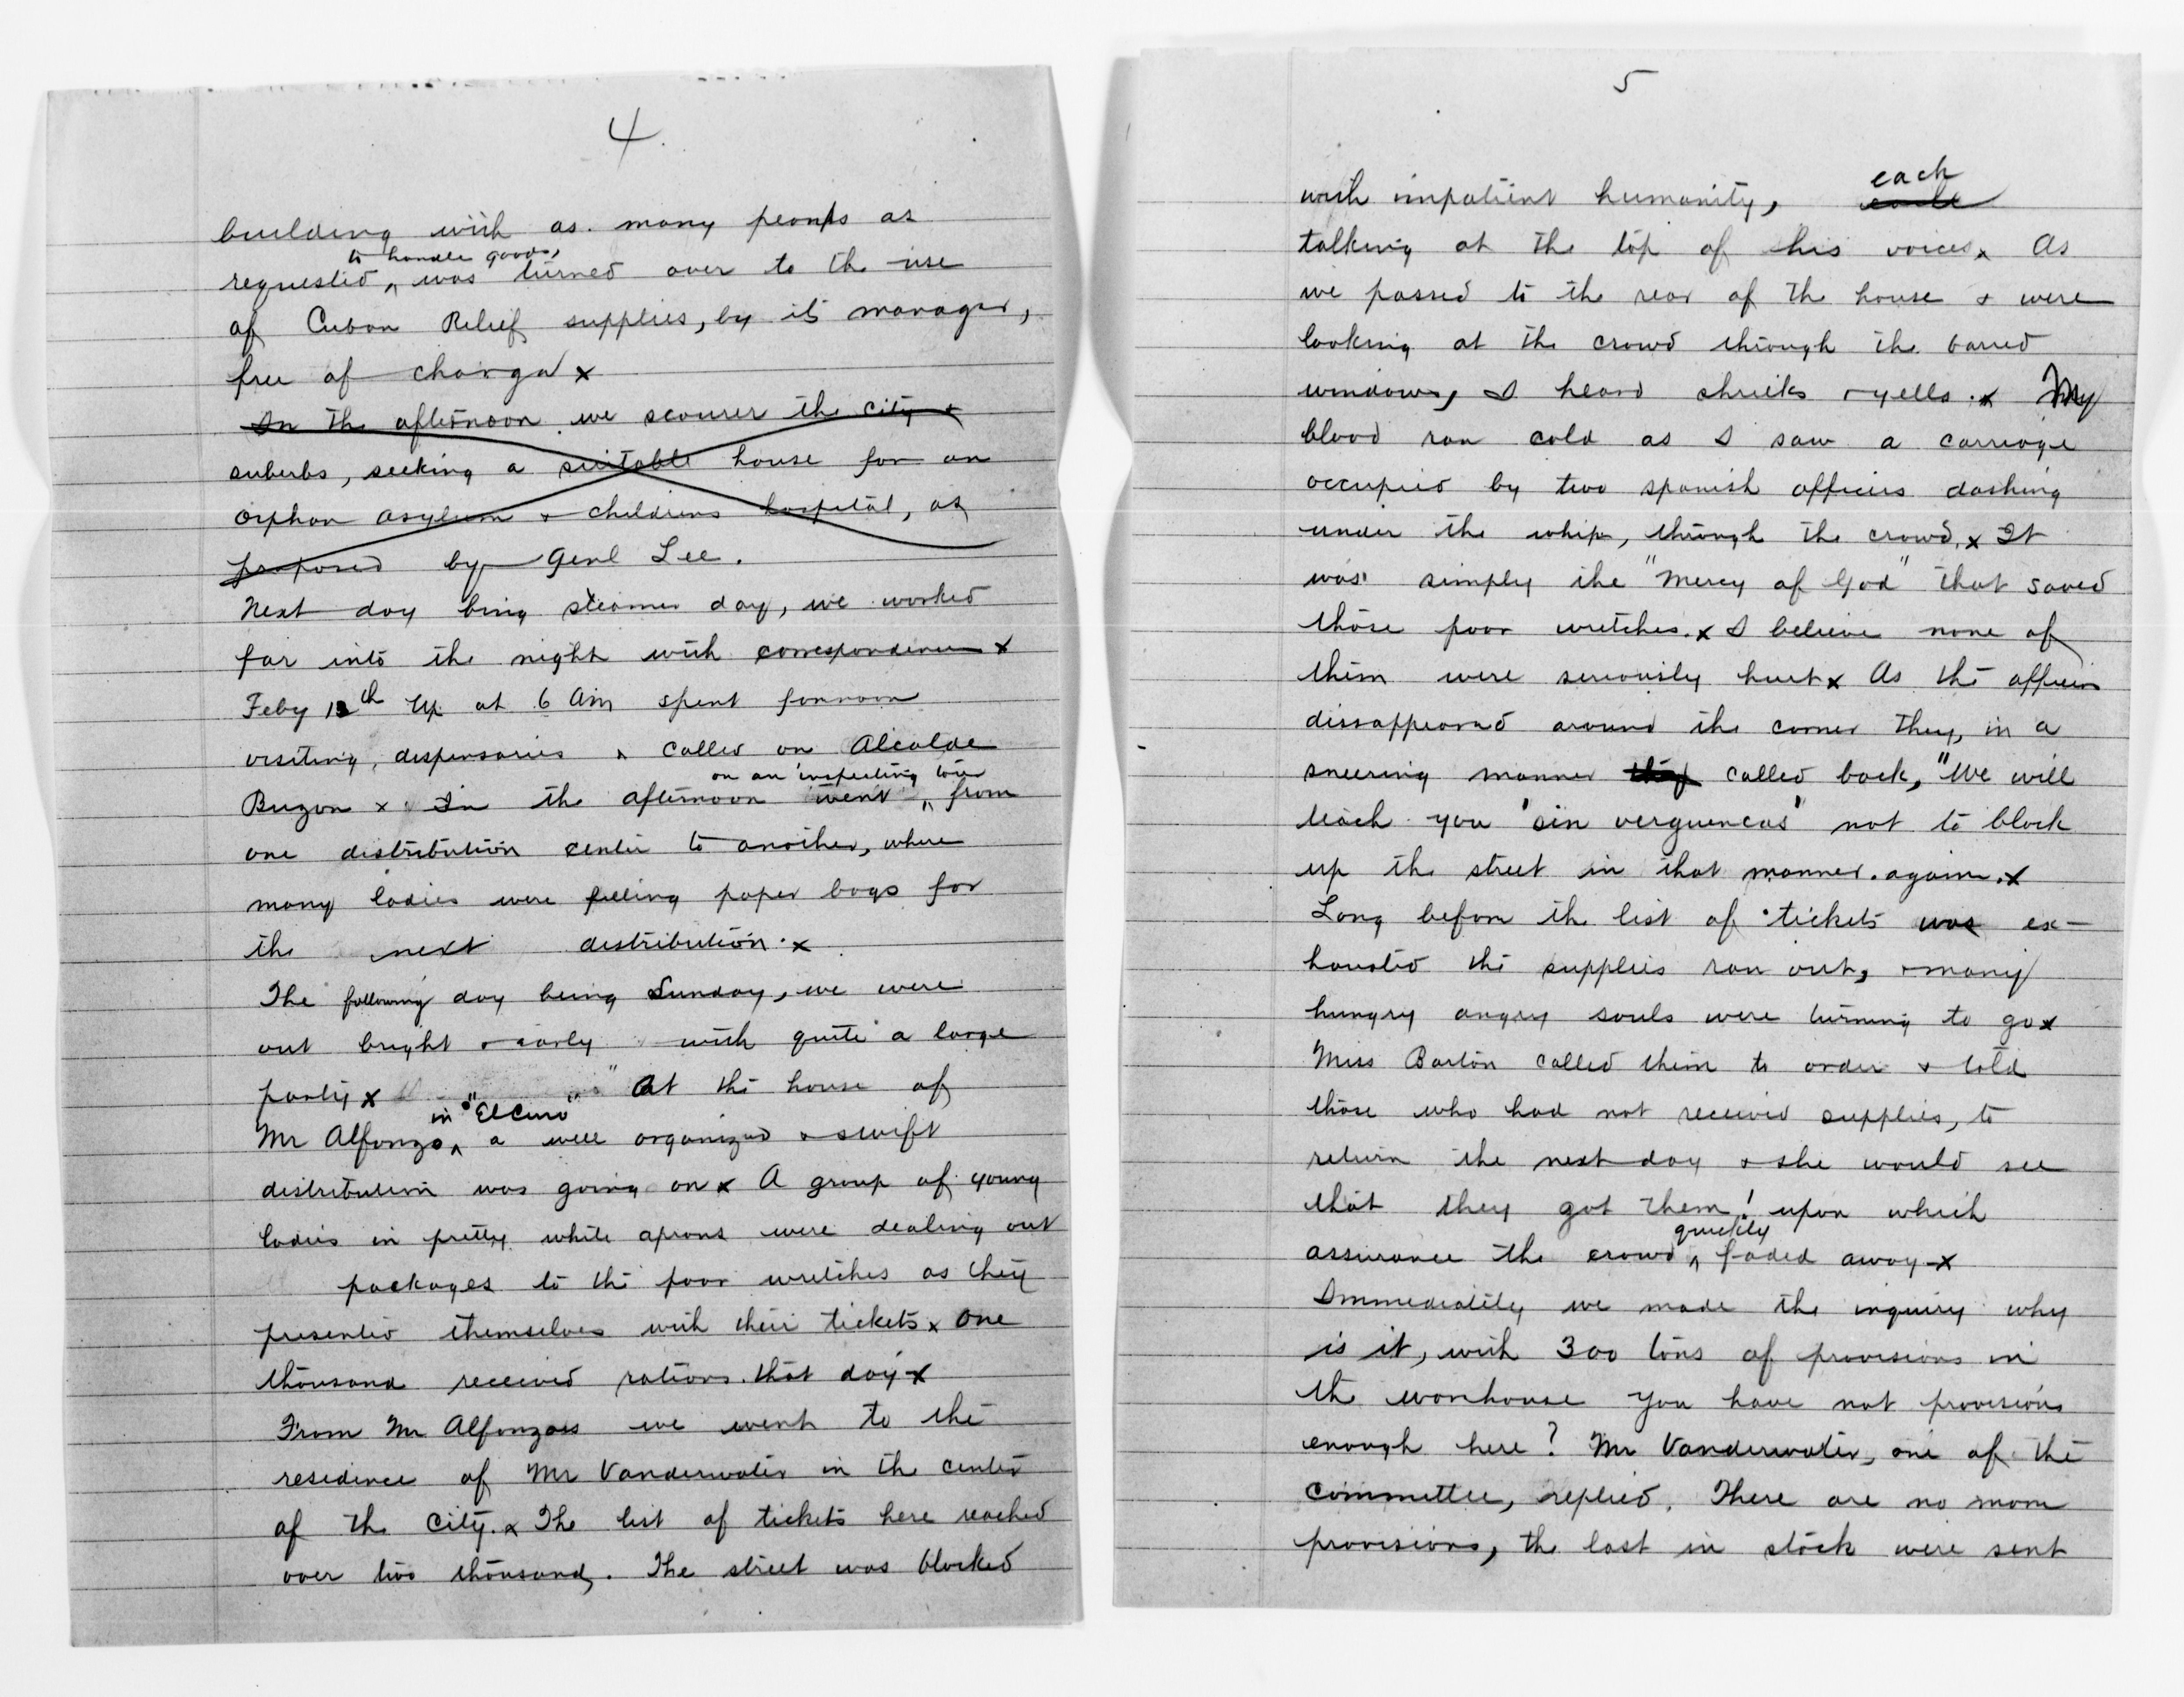 4.
building with as. many peonps as
to handle goods,
requested, ^ was turned over to the use
of Cuban Relief supplies, by its manager,
free of charge x
In the afternoon we scourer the city &
suberbs, seeking a suitable house for an
orphan asylum & childrens hospital, as
proposed by Genl Lee.
Next day being steamer day, we worked
far into the night with correspondence x
Feby 12th Up at 6 Am spent forenoon
visiting, dispensaries & called on Alcalde
on an inspecting tour
Buzon x In the afternoon went ^ from
one distribution center to another, where
many ladies were filling paper bags for
the next distribution. x
The following day being Sunday, we were
out bright & early with quite a large
party x At the house of
in "El Cerro"
Mr Alfonzo, ^ a well organized & swift
distribution was going on x A group of young
ladies in pretty white aprons were dealing out
packages to the poor wretches as they
presented themselves with their tickets x One
thousand received rations that day x
From Mr Alfonzos we went to the
residence of Mr Vanderwater in the center
of the City. x The list of tickets here reached
over two thousand. The street was blocked
5
with impatient humanity, each
talking at the top of his voices x As
we passed to the rear of the house & were
looking at the crowd through the barred
windows, I heard shrieks & yells. x My
blood ran cold as I saw a carriage
occupied by two spanish officers dashing
under the whip, through the crowd, x It
was simply the "Mercy of God" that saved
those poor wretches. x I believe none of
them were seriously hurt x As the officers
dissappeared around the corner they, in a
sneering manner they called back, "We will
teach you 'sin verguencas' not to block
up the street in that manner. again. x
Long before the list of tickets was ex-
hausted the supplies ran out, & many
hungry angry souls were turning to go x
Miss Barton called them to order & told
those who had not received supplies, to
return the next day & she would see
that they got them! upon which
quickly
assurance the crowd ^ faded away x
Immediately we made the inquiry why
is it, with 300 tons of provisions in
the warehouse you have not provisions
enough here? Mr Vanderwater, one of the
committee, replied. There are no more
provisions, the last in stock were sent